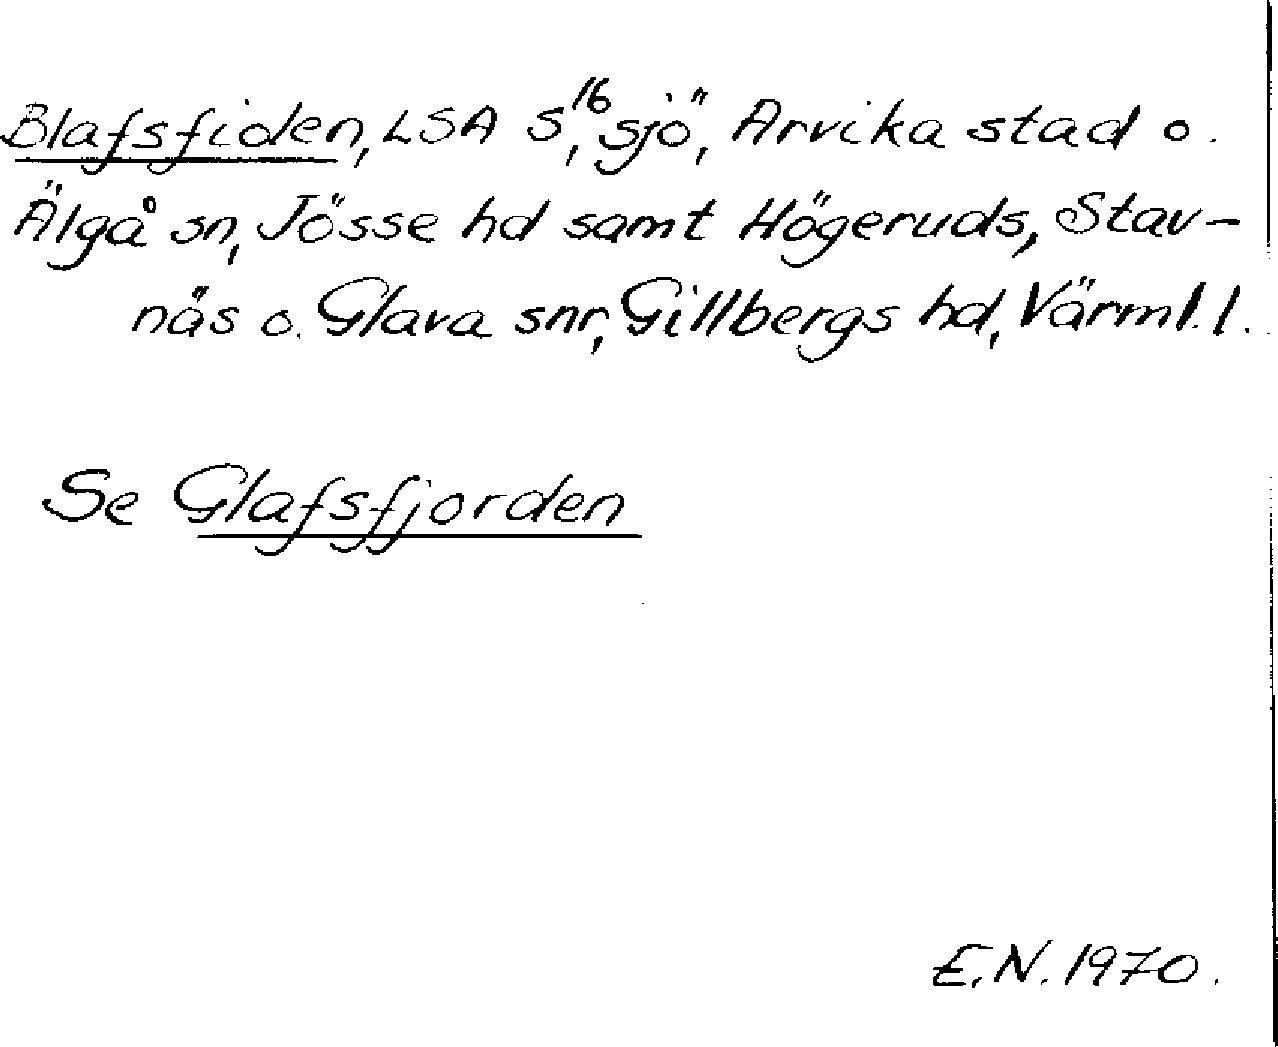 Blafsfiden, LSA S¹⁶, sjö, Arvika stad o.
Älgå sn, Jösse hd samt Högeruds, Stav-
näs o. Glava snr, Gillbergs hd, Värml. l.
Se Glafsfjorden
E.N. 1970.